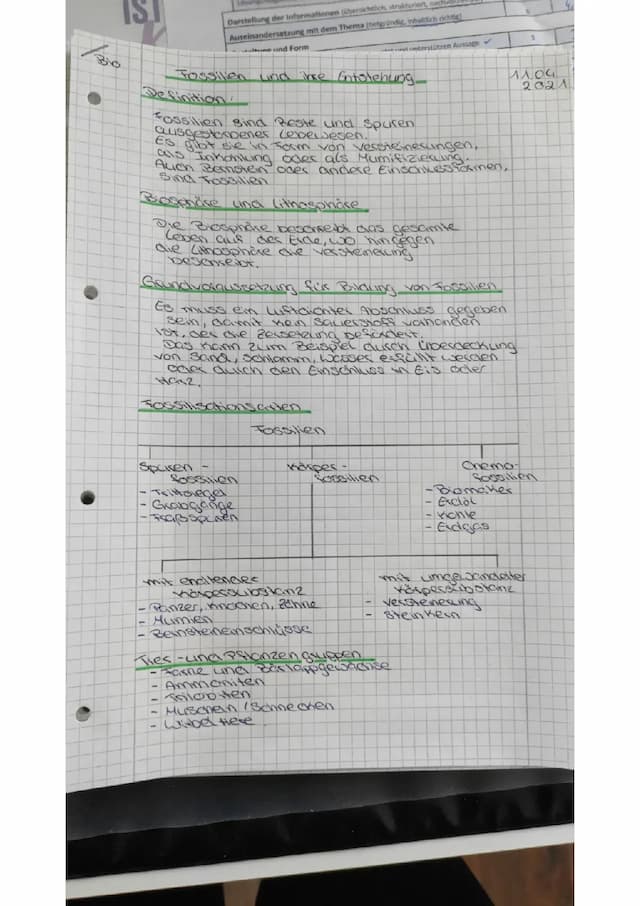 IST
Darstellung der Informationen (übersichtlich, strukturiert,
Auseinandersetzung mit dem Thema (tiefgründig, inhaltlich richtig)
und Form
und unterstützen Aussage
Bio
Fossilien und ihre Entstehung
11.04.
2021
Definition:
Fossilien sind Reste und Spuren
ausgestorbener Lebewesen.
Es gibt sie in Form von Versteinerungen,
als Inkohlung oder als Mumifizierung.
Auch Bernstein oder andere Einschlussformen,
sind Fossilien
Biosphäre und Lithosphäre
Die Biosphäre beschreibt das gesamte
Leben auf der Erde, wo hingegen
die Lithosphäre die Versteinerung
beschreibt.
Grundvoraussetzung für Bildung von Fossilien
Es muss ein luftdichter Abschluss gegeben
sein, damit kein Sauerstoff vorhanden
ist, der die Zersetzung befördert.
Das kann zum Beispiel durch Überdeckung
von Sand, Schlamm, Wasser erfüllt werden
oder durch den Einschluss in Eis oder
Harz.
Fossilisationsarten
Fossilien
Spuren -
fossilien
- Trittsiegel
- Grabgänge
- Fraßspuren
Körper -
fossilien
Chemo-
fossilien
- Biomarker
- Erdöl
- Kohle
- Erdgas
mit erhaltender
Körpersubstanz
- Panzer, Knochen, Zähne
- Mumien
- Bernsteineinschlüsse
mit umgewandelter
Körpersubstanz
- Versteinerung
- Steinkern
Tier- und Pflanzengruppen
- Farne und Bärlappgewächse
- Ammoniten
- Trilobiten
- Muscheln / Schnecken
- Wirbeltiere